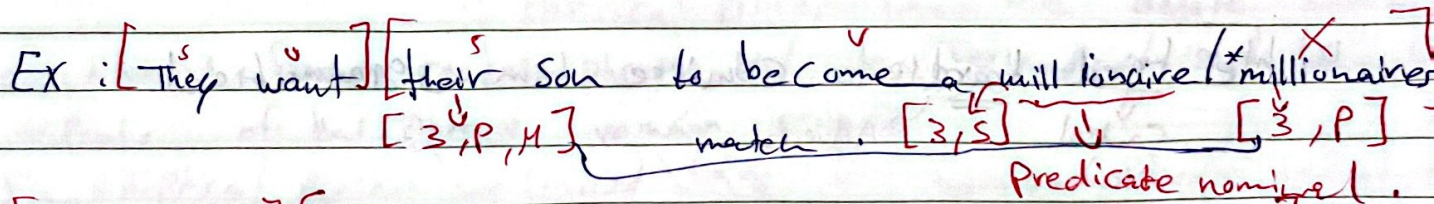 s v s v
Ex : [They want] [their son to become a millionaire / *millionaires]
[3,P,M] match. [3,S] [3,P]
Predicate nominal.